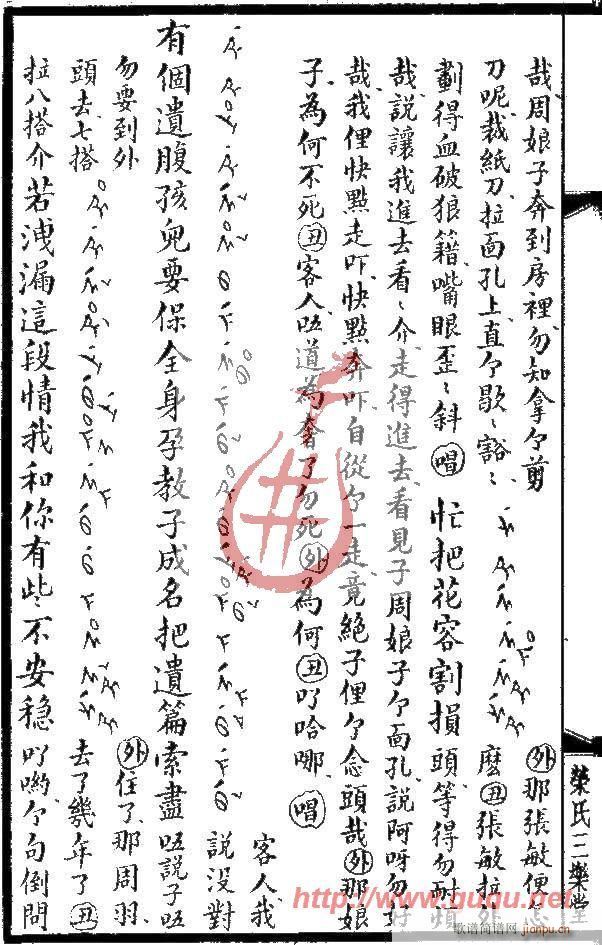 哉周娘子奔到房裡勿知拿个剪 外那張敏便怎
刀呢裁紙刀拉面孔上直个歇〻豁〻 麽丑張敏拉外
劃得血破狼籍嘴眼歪〻斜唱忙把花容割損頭等得勿耐煩
哉說讓我進去看〻介走得進去看見子周娘子个面孔說阿呀勿好
哉我俚快點走吓快點奔吓自從个一走竟絕子俚个念頭哉外那娘
子為何不死丑客人唔道為奢了勿死外為何丑吖哈哪唱
客人我
說沒對
有個遺腹孩兒要保全身孕教子成名把遺篇索盡唔說子唔
勿要到外 外住了那周羽
頭去七搭 去了幾年了丑
拉八搭介若洩漏這段情我和你有些不安穩吖喲个句倒問
榮氏三樂堂
http://www.guqu.net
歌谱简谱网
jianpu.cn